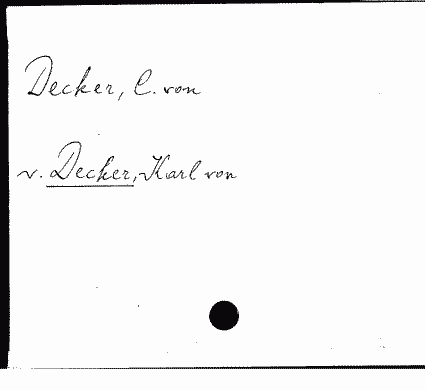 Decker, C. von
v. Decker, Karl von